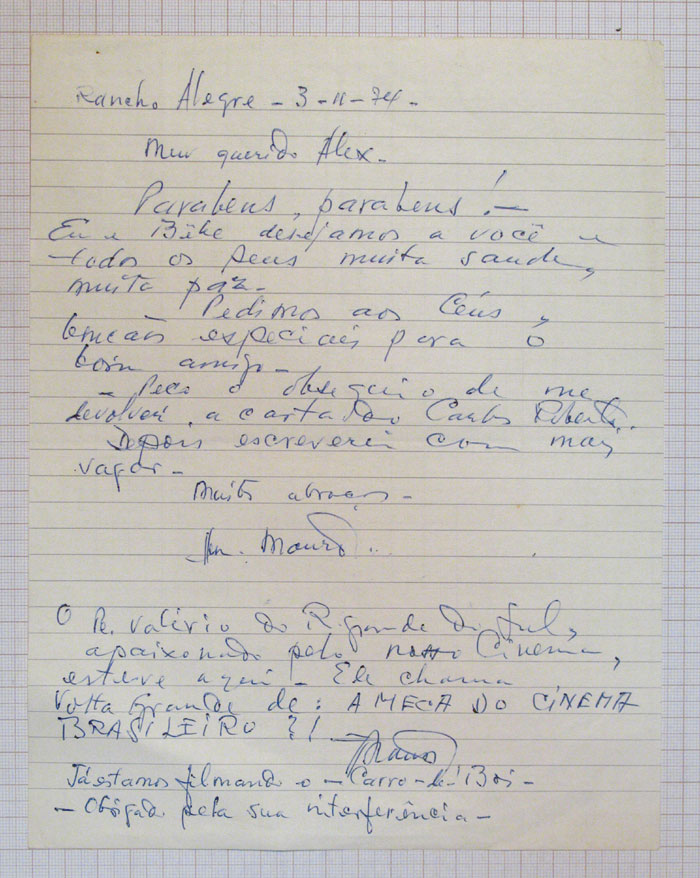 Rancho Alegre - 3-11-74-
Meu querido Alex-
Parabens, parabens! -
Eu e Bêbe desejamos a você e
todos os seus muita saude,
muita paz-
Pedimos aos Céus,
bençãos especiais para o
bom amigo-
- Peço o obsequio de me
devolver, a carta do Carlos Roberto.
Depois escreverei com mais
vagar-
Muitos abraços-
H. Mauro
O Pe. Valério do R. Grande do Sul,
apaixonado pelo nosso Cinema,
esteve aqui - Ele chama
Volta Grande de: A MECA DO CINEMA
BRASILEIRO ?! -
Mauro
Já estamos filmando o - Carro-de-Boi -
- Obrigado pela sua interferência -